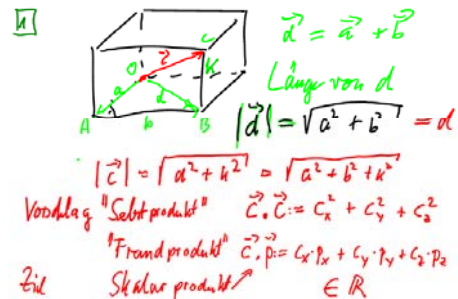 h
d⃗ = a⃗ + b⃗
O c⃗ C K
a d
Länge von d
A b B
|d⃗| = √(a² + b²) = d
|c⃗| = √(d² + k²) = √(a² + b² + k²)
Vorschlag "Selbstprodukt" c⃗ · c⃗ := c_x² + c_y² + c_z²
"Fremdprodukt" c⃗ · p⃗ := c_x · p_x + c_y · p_y + c_z · p_z
Ziel Skalarprodukt ∈ ℝ